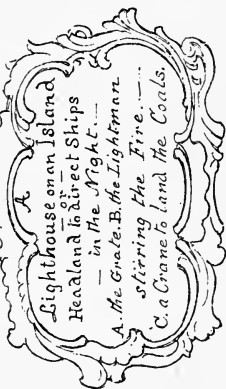 A
Lighthouse on an Island
or
Headland to direct Ships
in the Night.
A. the Grate. B. the Lightman
stirring the Fire.
C. a Crane to land the Coals.